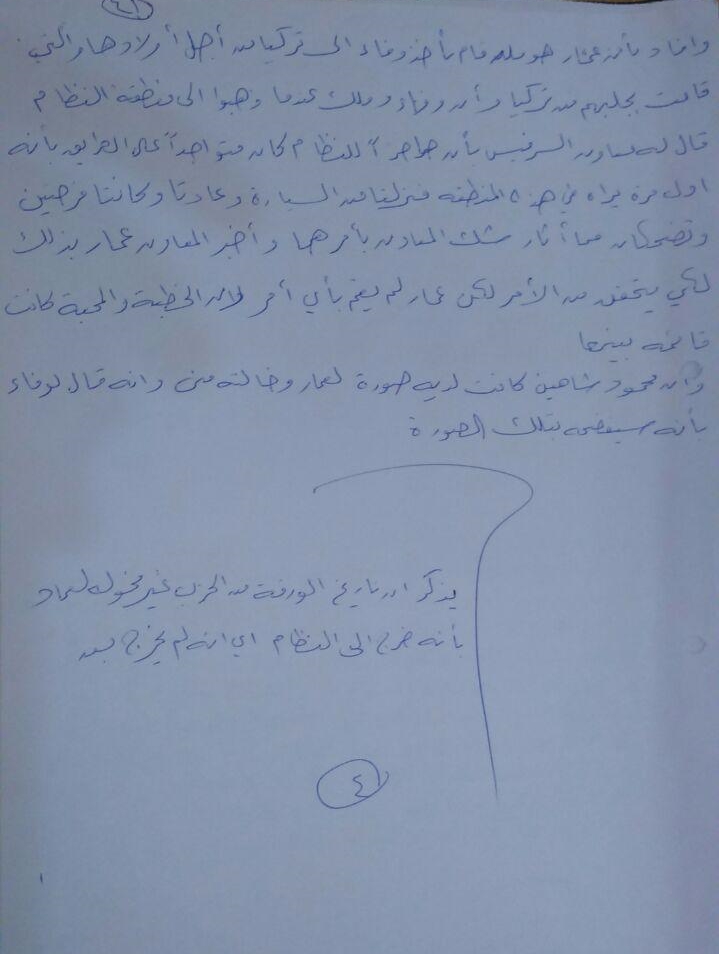 ٤١
وافاد بأن عمار هو من قام بأخذ وفاء الى تركيا من أجل أولادها والتي
قامت بجلبهم من تركيا وأن وفاء وملك عندما ذهبوا الى منطقة النظام
قال له معاون السرفيس بأن حاجزاً للنظام كان متواجداً على الطريق بأنه
اول مرة يراه في هذه المنطقة فنزلتا من السيارة وعادتا وكانتا فرحتين
وتضحكان مما أثار شك المعاون بأمرهما وأخبر المعاون عمار بذلك
لكي يتحقق من الأمر لكن عمار لم يقم بأي أمر لان الخطبة والمحبة كانت
قائمة بينهما
وان محمود شاهين كانت لديه صورة لعمار وخالته منى وانه قال لوفاء
بأنه سيفضحه بتلك الصورة
يذكر ان تاريخ الورقة من الحزب غير مخوله لعماد
بأنه خرج الى النظام اي انه لم يخرج بعد
٤